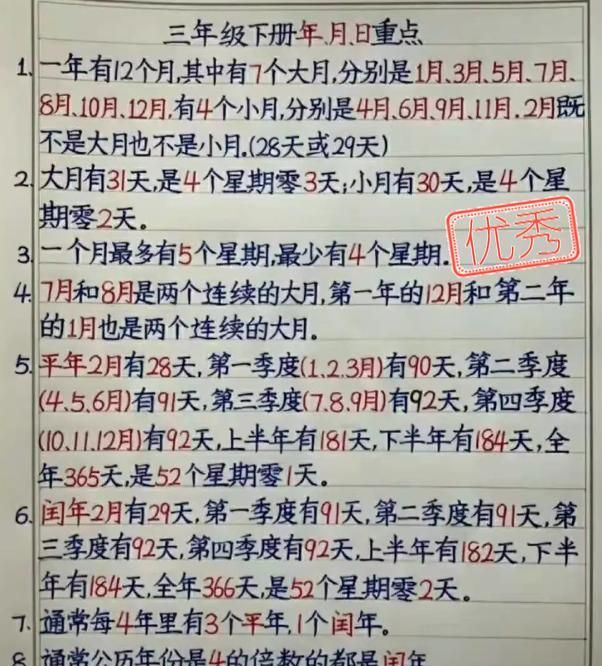 三年级下册年、月、日重点
1. 一年有12个月,其中有7个大月,分别是1月、3月、5月、7月、
8月、10月、12月,有4个小月,分别是4月、6月、9月、11月. 2月既
不是大月也不是小月.(28天或29天)
2. 大月有31天,是4个星期零3天;小月有30天,是4个星
期零2天。
3. 一个月最多有5个星期,最少有4个星期.
优秀
4. 7月和8月是两个连续的大月,第一年的12月和第二年
的1月也是两个连续的大月。
5. 平年2月有28天,第一季度(1.2.3月)有90天,第二季度
(4.5.6月)有91天,第三季度(7.8.9月)有92天,第四季度
(10.11.12月)有92天,上半年有181天,下半年有184天,全
年365天,是52个星期零1天。
6. 闰年2月有29天,第一季度有91天,第二季度有91天,第
三季度有92天,第四季度有92天,上半年有182天,下半
年有184天,全年366天,是52个星期零2天。
7. 通常每4年里有3个平年,1个闰年。
8. 通常公历年份是4的倍数的都是闰年